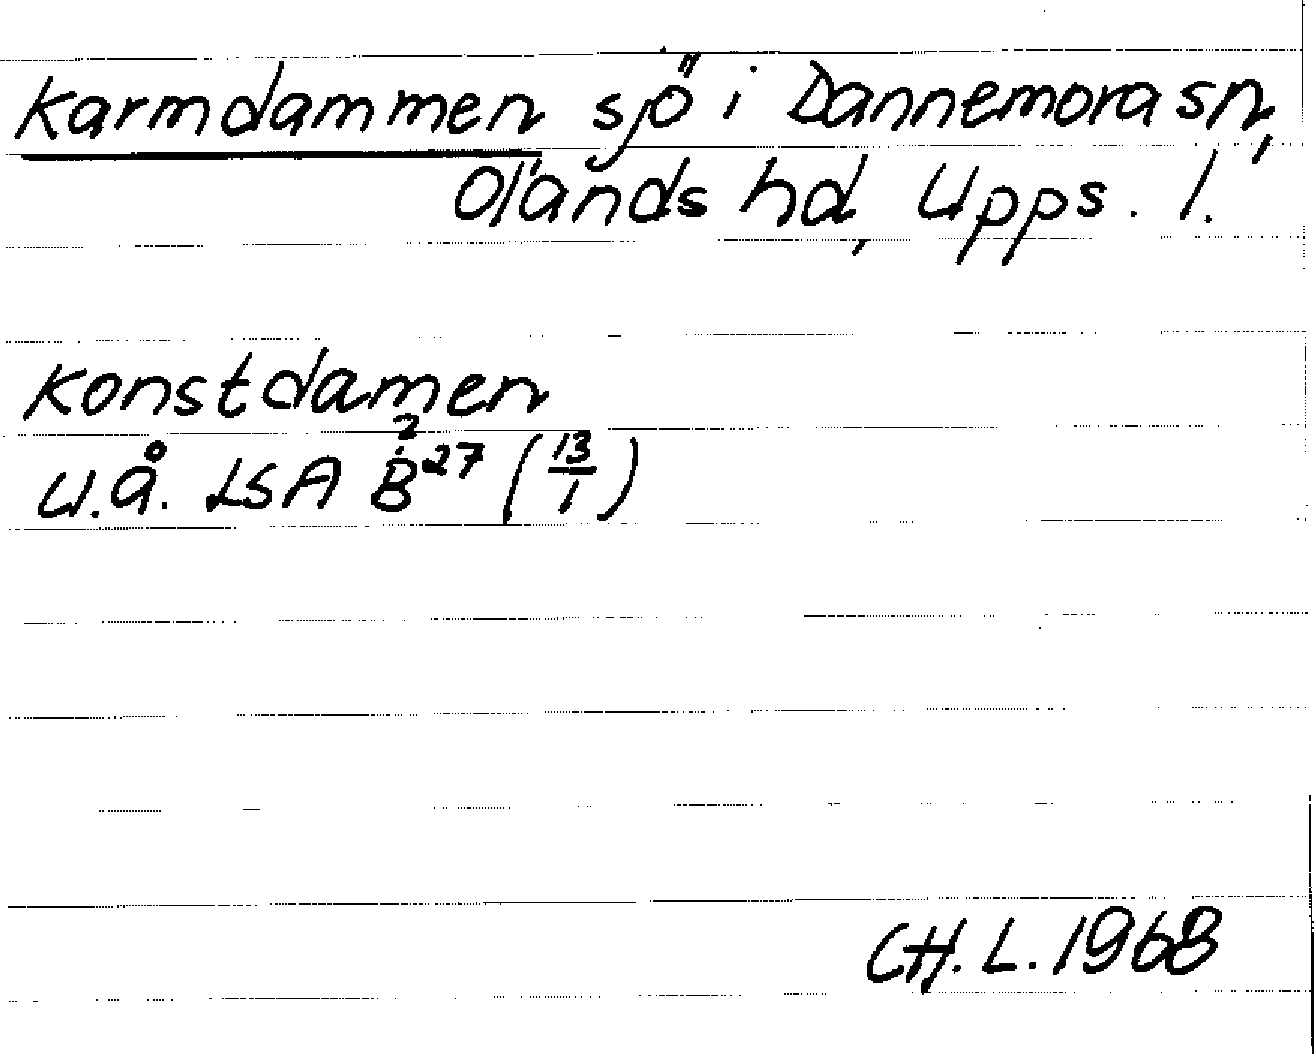 Karmdammen sjö i Dannemora sn,
Olands hd, Upps. l.
Konstdamen
u.å. LSA B²27 (13/1)
CH. L. 1968